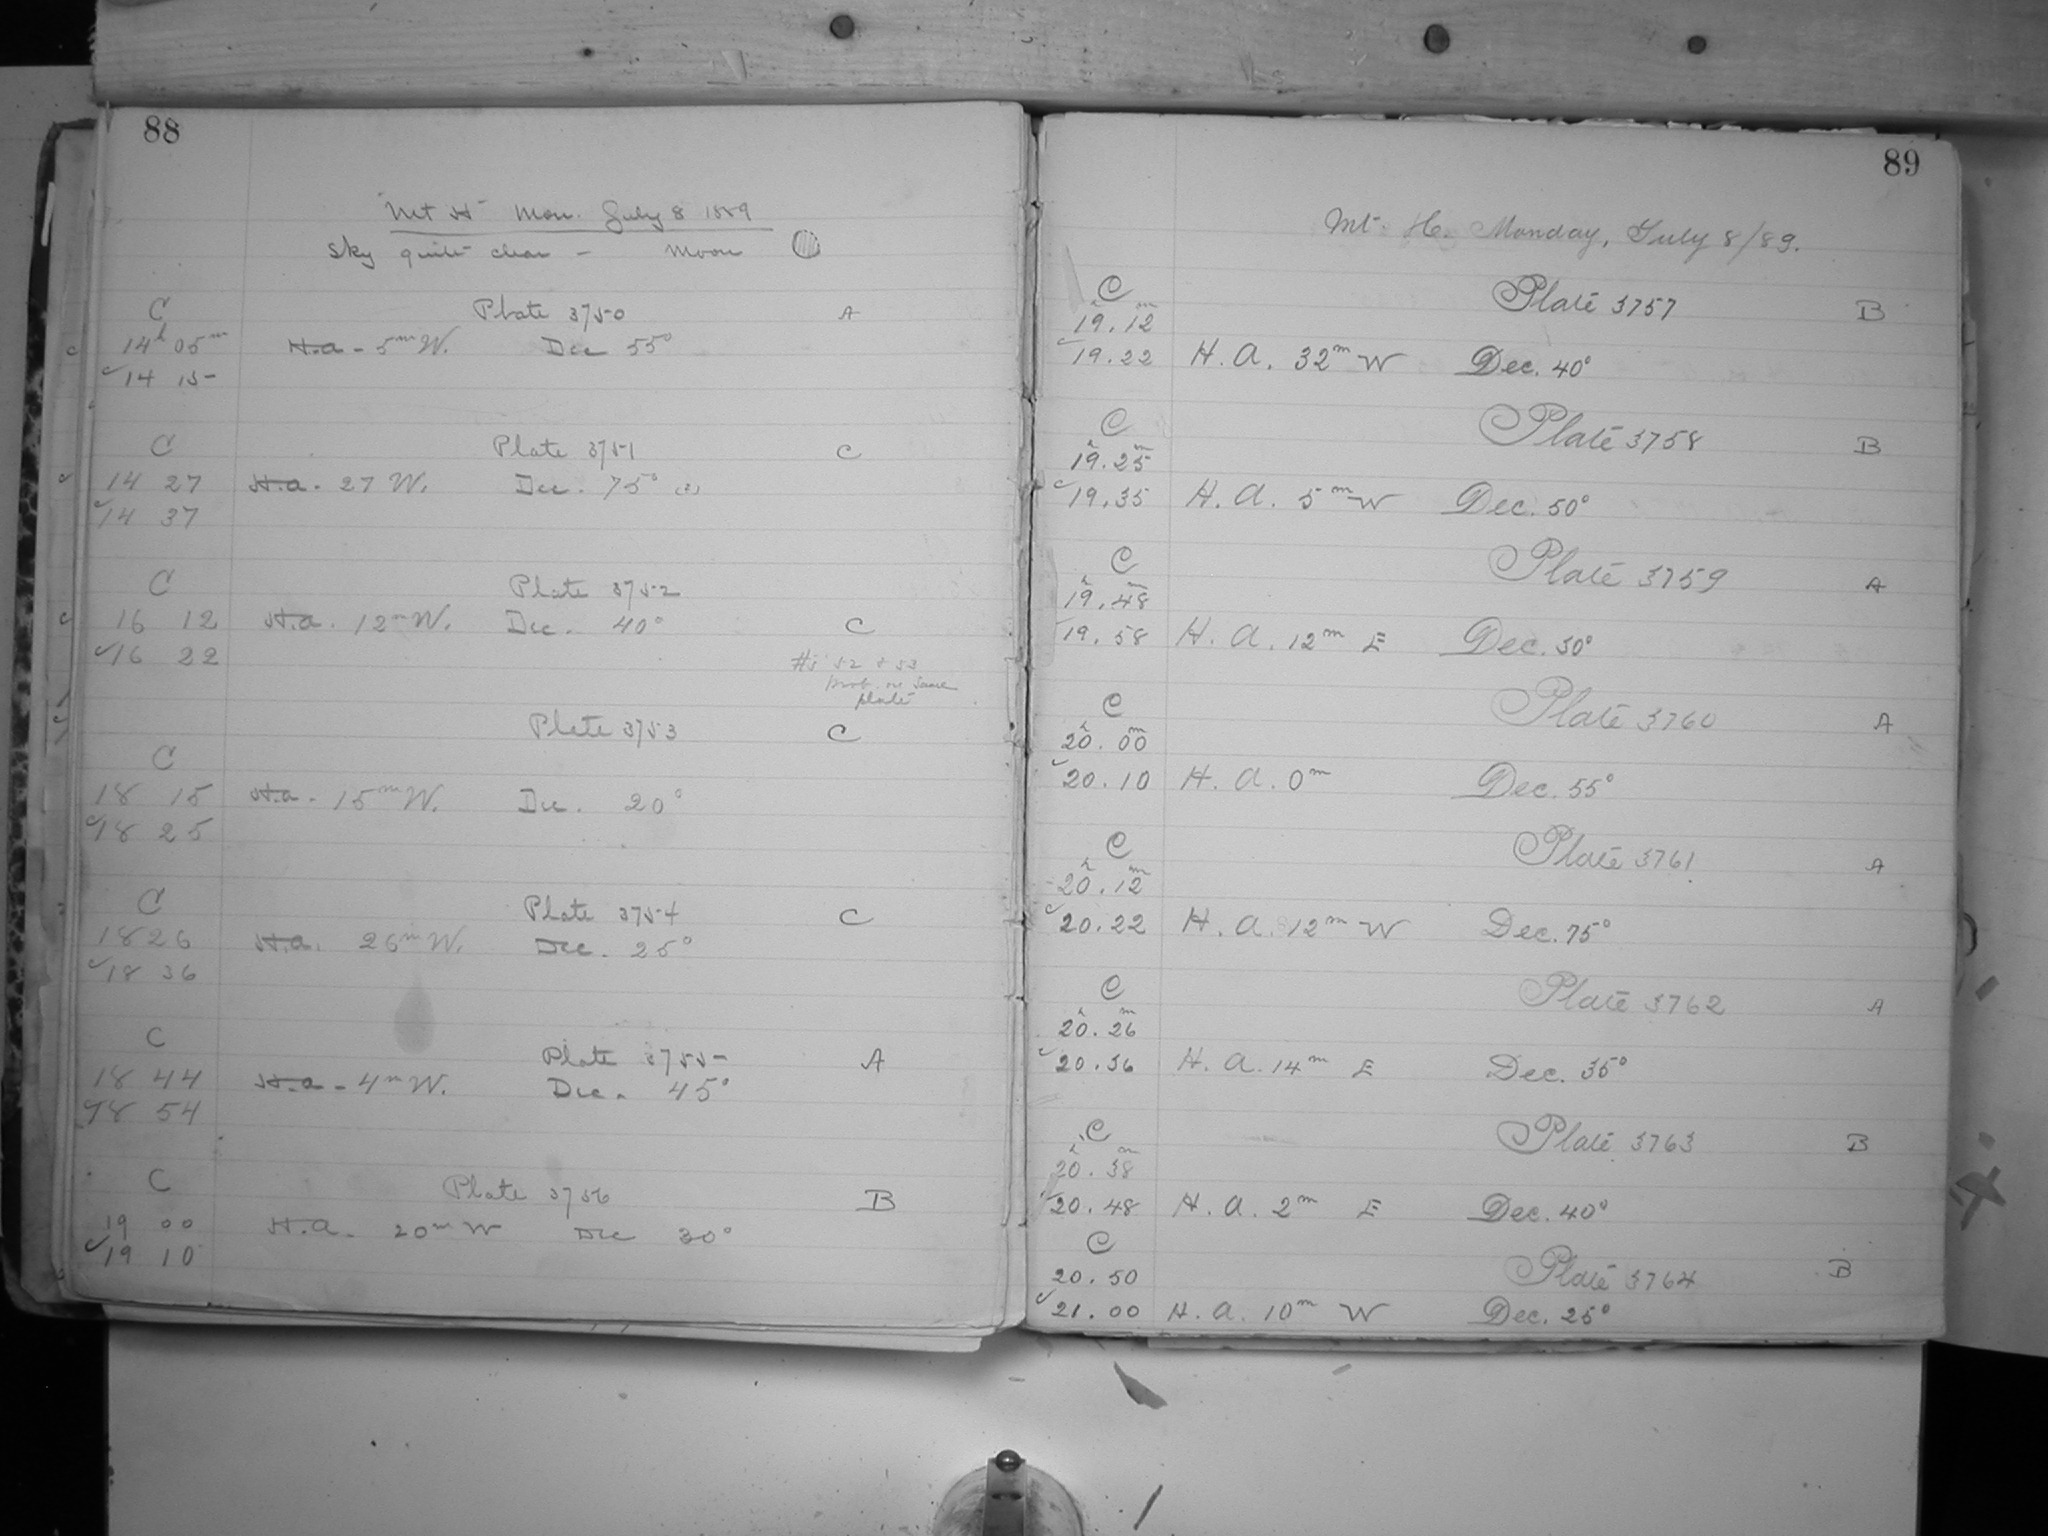 88
Mt H Mon. July 8 1889
Sky quite clear - Moon
C Plate 3750 A
c 14h 05m H.a - 5m W. Dec 55°
14 15
C Plate 3751 C
c 14 27 H.a. 27 W. Dec. 75° (?)
14 37
C Plate 3752
c 16 12 H.a. 12m W. Dec. 40° C
16 22 #s 52 & 53
prob. on same
plate
Plate 3753 C
C
18 15 H.a. 15m W. Dec. 20°
18 25
C Plate 3754 C
18 26 H.a. 26m W. Dec. 25°
18 36
C Plate 3755 A
18 44 H.a - 4m W. Dec. 45°
18 54
C Plate 3756 B
19 00 H.a. 20m W Dec 30°
19 10
89
Mt. H. Monday, July 8/89.
C Plate 3757 B
19h. 12m
19.22 H. A. 32m W Dec. 40°
C Plate 3758 B
19h. 25m
19.35 H. A. 5m W Dec. 50°
C Plate 3759 A
19h. 48m
19.58 H. A. 12m E Dec. 30°
C Plate 3760 A
20h. 00m
20.10 H. A. 0m Dec. 55°
C Plate 3761 A
20h. 12m
20.22 H. A. 12m W Dec. 75°
C Plate 3762 A
20h. 26m
20.36 H. A. 14m E Dec. 35°
C Plate 3763 B
20h. 38m
20.48 H. A. 2m E Dec. 40°
C
20.50 Plate 3764 B
21.00 H. A. 10m W Dec. 25°